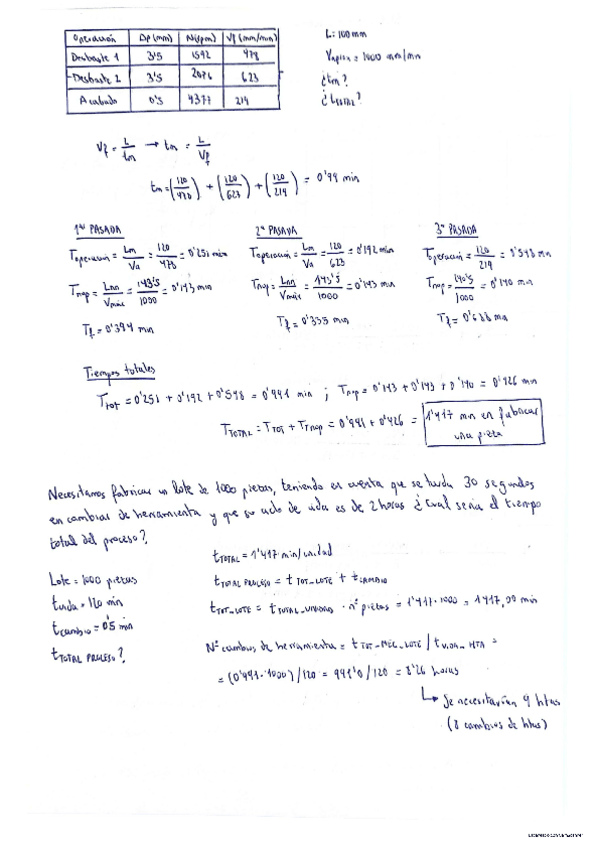 Operación Ap (mm) N(rpm) Vf (mm/min)
Desbaste 1 3'5 1592 478
Desbaste 2 3'5 2076 623
Acabado 0'5 4377 214
L: 100 mm
= 1000 mm/min
¿tm?
¿tTOTAL?
Vf = L/tm → tm = L/Vf
tm = (120/478) + (120/623) + (120/214) = 0'99 min
1ra PASADA
Toperación = Lm/Va = 120/478 = 0'251 min
Tnop = Lnn/Vmáx = 143'5/1000 = 0'143 min
Tf = 0'394 min
2ª PASADA
Toperación = Lm/Va = 120/623 = 0'192 min
Tnop = Lnn/Vmáx = 143'5/1000 = 0'143 min
Tf = 0'335 min
3ª PASADA
Toperación = 120/214 = 0'548 min
Tnop = 140'5/1000 = 0'140 min
Tf = 0'688 min
Tiempos totales
TTOT = 0'251 + 0'192 + 0'548 = 0'991 min ; Tnop = 0'143 + 0'143 + 0'140 = 0'426 min
TTOTAL = TTOT + TTnop = 0'991 + 0'426 = 1'417 min en fabricar
una pieza
Necesitamos fabricar un lote de 1000 piezas, teniendo en cuenta que se tarda 30 segundos
en cambiar de herramienta y que su ciclo de vida es de 2 horas ¿Cual seria el tiempo
total del proceso?
Lote = 1000 piezas
tvida = 120 min
tcambio = 0'5 min
tTOTAL PROCESO?
tTOTAL = 1'417 min/unidad
tTOTAL PROCESO = tTOT_LOTE + tCAMBIO
tTOT_LOTE = tTOTAL_UNIDAD · nº piezas = 1'417 · 1000 = 1417,00 min
Nº cambios de herramienta = tTOT_MEC_LOTE / tVIDA_HTA =
= (0'991 · 1000) / 120 = 991'0 / 120 = 8'26 horas
↳ Se necesitarían 9 htas
(8 cambios de htas)